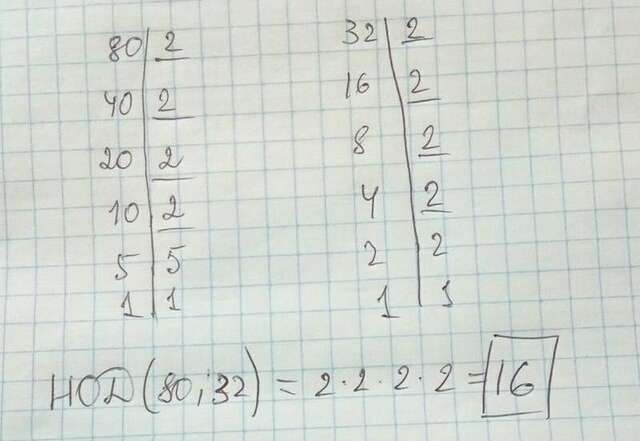 80 | 2 32 | 2
40 | 2 16 | 2
20 | 2 8 | 2
10 | 2 4 | 2
5 | 5 2 | 2
1 | 1 1 | 1
НОД (80; 32) = 2 · 2 · 2 · 2 = 16